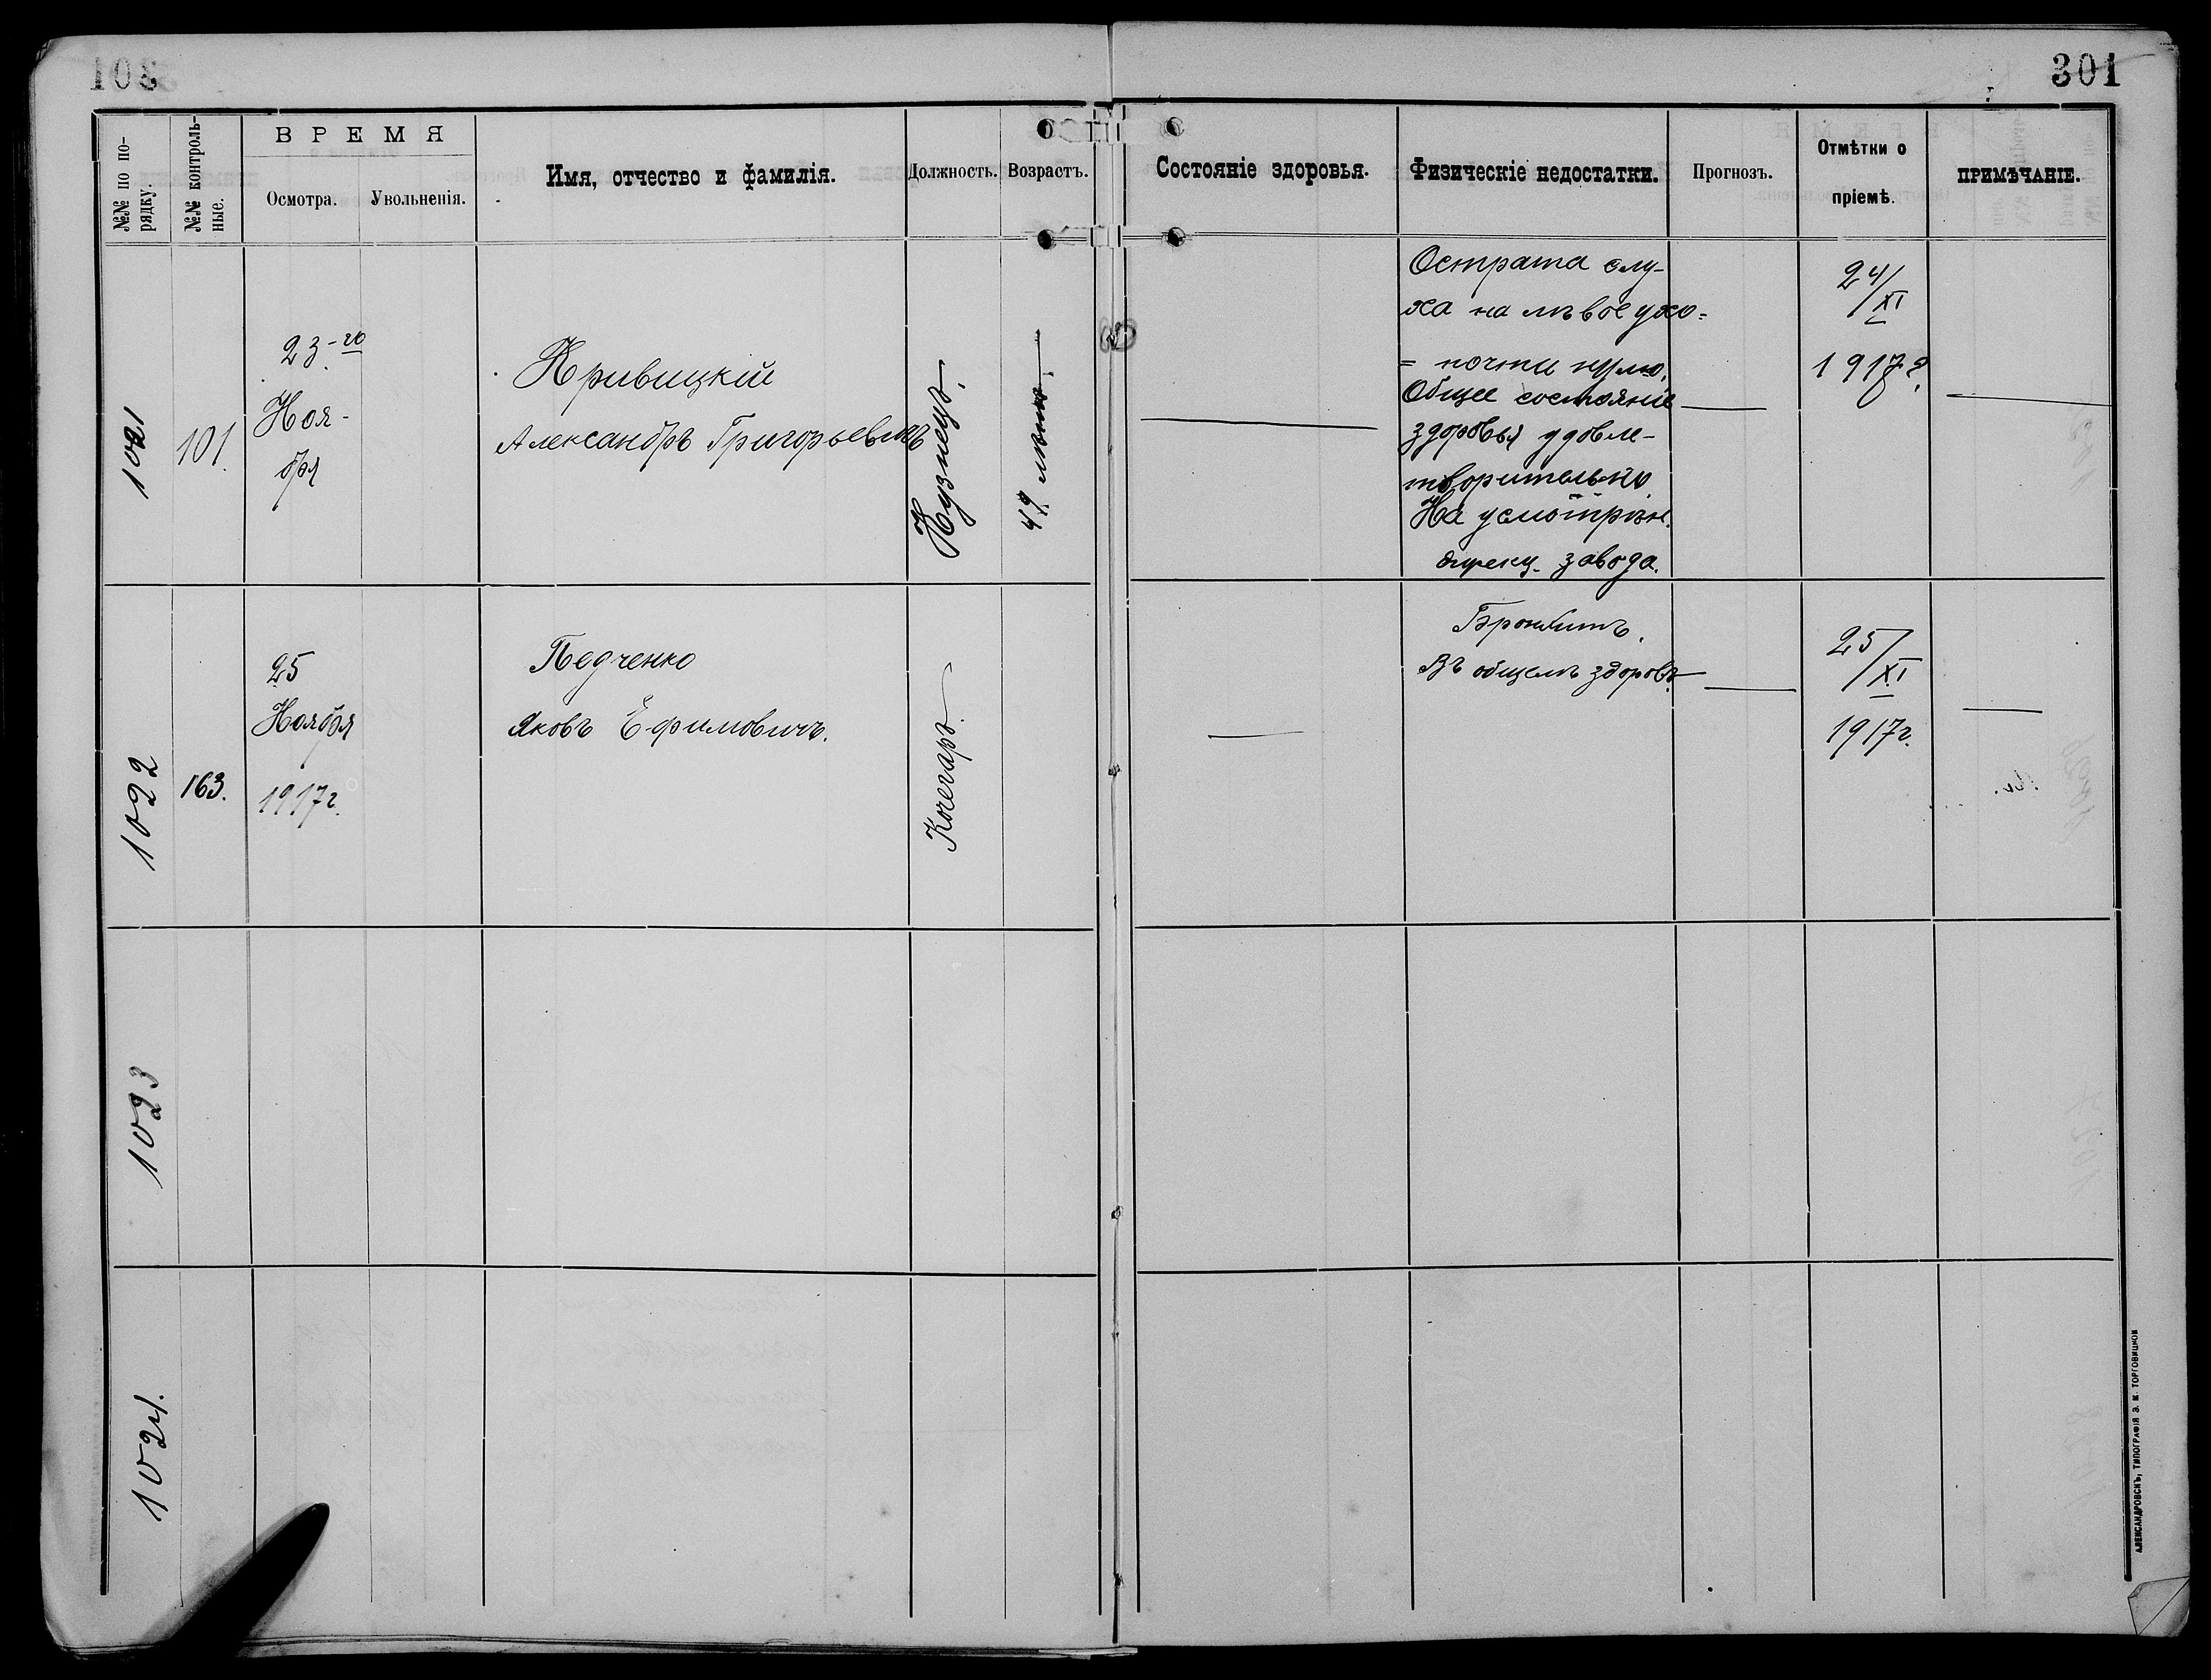 301
№№ по по-
рядку.
№№ контроль-
ные.
ВРЕМЯ
Осмотра.
Увольненія.
Имя, отчество и фамилія.
Должность.
Возрастъ.
Состояніе здоровья.
Физическіе недостатки.
Прогнозъ.
Отмѣтки о
пріемѣ.
ПРИМѢЧАНІЕ.
1021
101.
23-го
Ноя-
бря
Кривицкій
Александръ Григорьевичъ
Кузнецъ.
49 лѣтъ.
—
Острата слу-
ха на лѣвое ухо=
= почти нулю.
Общее состояніе
здоровья удовле-
творительно.
На усмотрѣн.
дирекц. завода.
—
24/XI
1917 г.
—
1022
163.
25
Ноября
1917 г.
Педченко
Яковъ Ефимовичъ.
Кочегаръ.
—
Бронхитъ.
Въ общемъ здоровъ.
—
25/XI
1917 г.
—
1023
1024.
АЛЕКСАНДРОВСКЪ, ТИПОГРАФІЯ Э. И. ТОРГОВИЦКОЙ